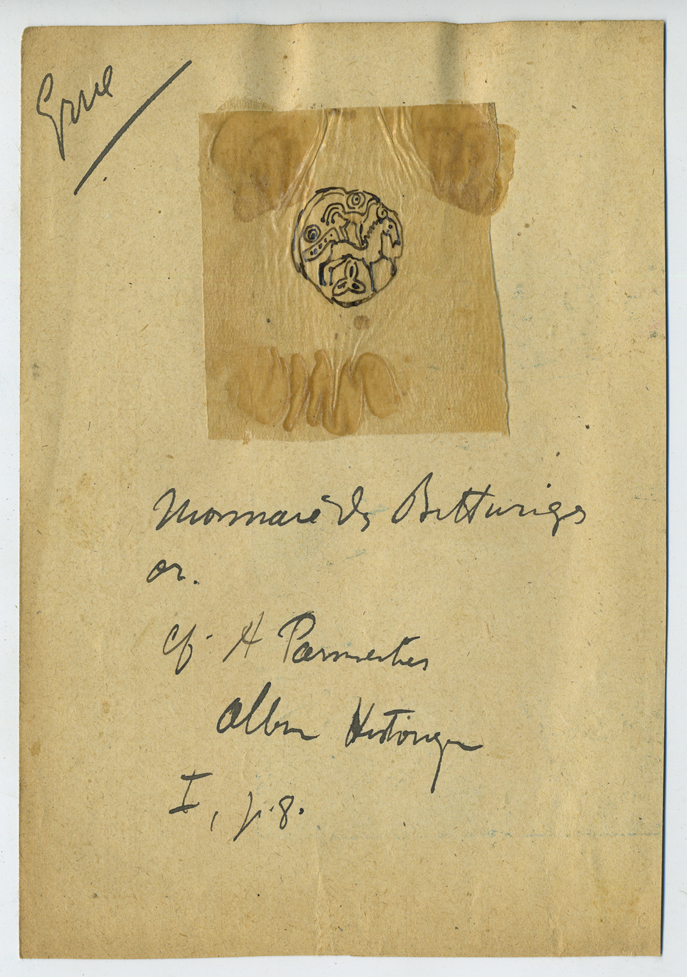 Grue
Monnaie des Bitturiges
or.
cf. A Parmentier
Album Historique
I, p. 8.